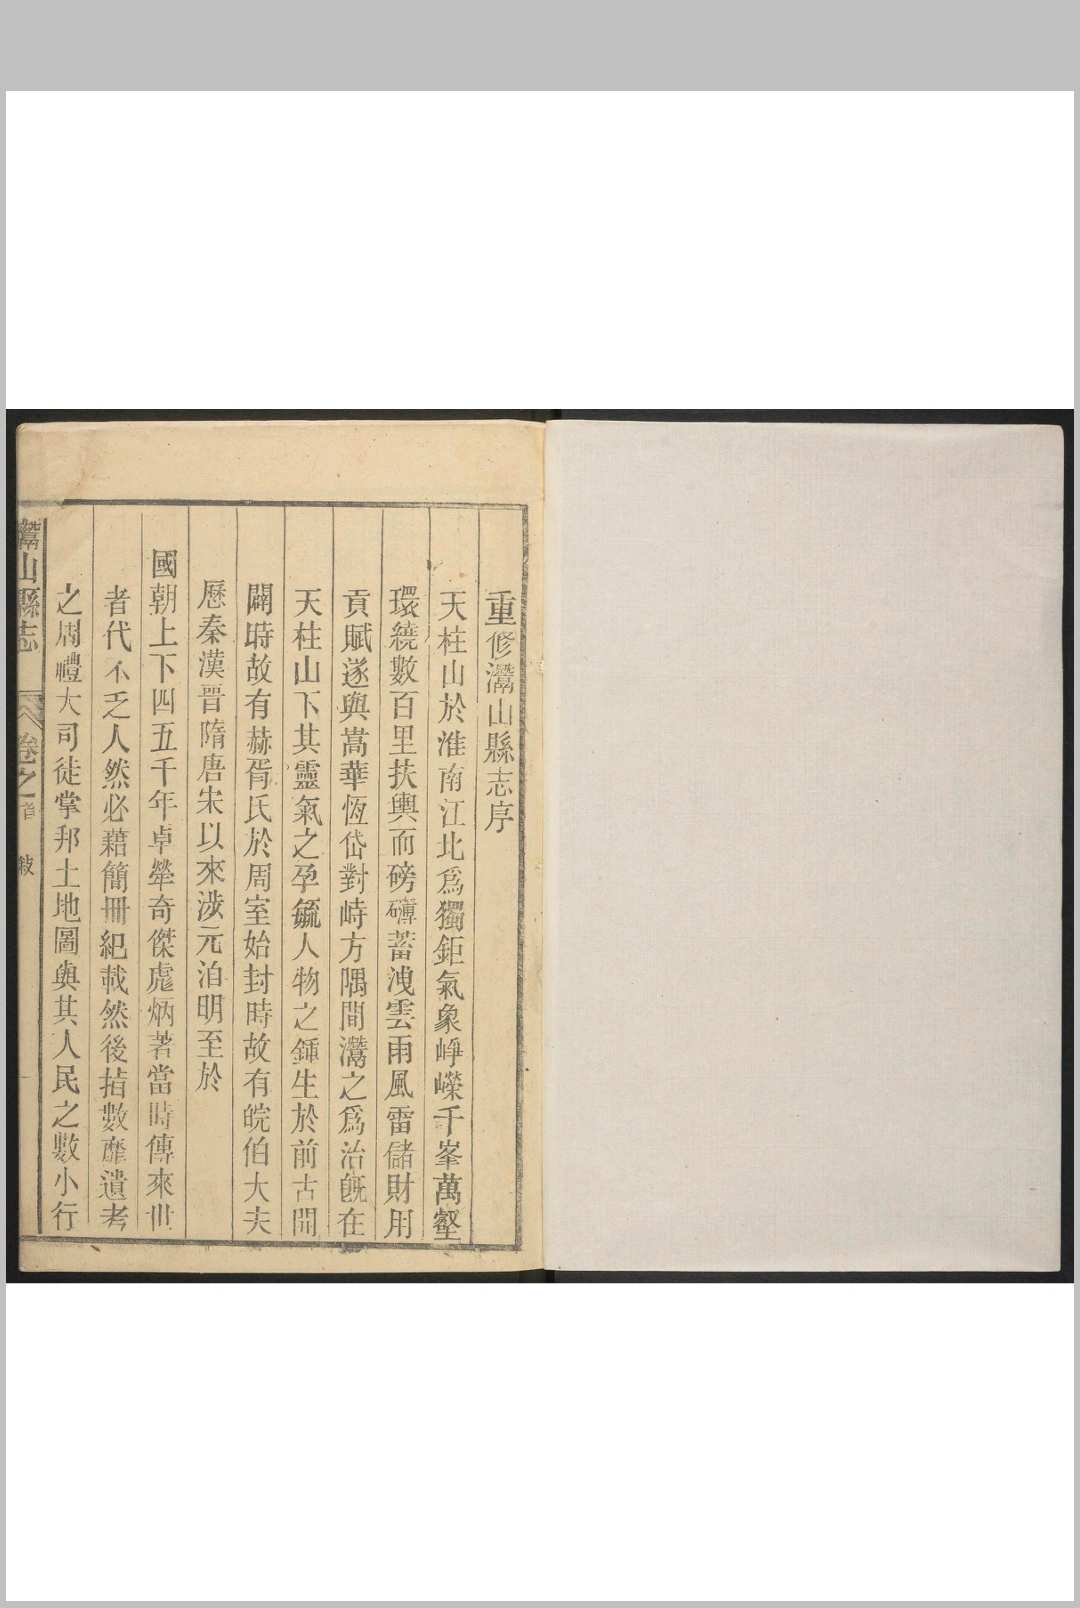 重修灊山縣志序
天柱山於淮南江北爲獨鉅氣象崢嶸千峯萬壑
環繞數百里扶輿而磅礴蓄洩雲雨風雷儲財用
貢賦遂與嵩華恆岱對峙方隅間灊之爲治旣在
天柱山下其靈氣之孕毓人物之鍾生於前古開
闢時故有赫胥氏於周室始封時故有皖伯大夫
歷秦漢晉隋唐宋以來涉元洎明至於
國朝上下四五千年卓犖奇傑彪炳著當時傳來世
者代不乏人然必藉簡冊紀載然後掂數靡遺考
之周禮大司徒掌邦土地圖與其人民之數小行
灊山縣志 卷之首 敘